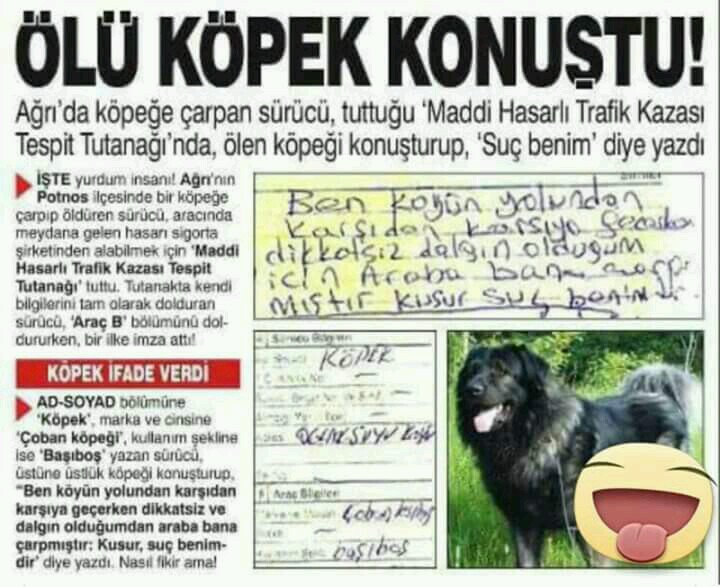 ÖLÜ KÖPEK KONUŞTU!
Ağrı'da köpeğe çarpan sürücü, tuttuğu 'Maddi Hasarlı Trafik Kazası
Tespit Tutanağı'nda, ölen köpeği konuşturup, 'Suç benim' diye yazdı
İŞTE yurdum insanı! Ağrı'nın
Potnos ilçesinde bir köpeğe
çarpıp öldüren sürücü, aracında
meydana gelen hasarı sigorta
şirketinden alabilmek için 'Maddi
Hasarlı Trafik Kazası Tespit
Tutanağı' tuttu. Tutanakta kendi
bilgilerini tam olarak dolduran
sürücü, 'Araç B' bölümünü dol-
dururken, bir ilke imza attı!
KÖPEK İFADE VERDİ
AD-SOYAD bölümüne
'Köpek', marka ve cinsine
'Çoban köpeği', kullanım şekline
ise 'Başıboş' yazan sürücü,
üstüne üstlük köpeği konuşturup,
"Ben köyün yolundan karşıdan
karşıya geçerken dikkatsiz ve
dalgın olduğumdan araba bana
çarpmıştır: Kusur, suç benim-
dir' diye yazdı. Nasıl fikir ama!
Ben köyün yolundan
karşıdan karşıya
dikkatsiz dalgın olduğum
için Araba bana
mıştır kusur suç
KÖPEK
Araç Bilgileri
Çoban
başıboş